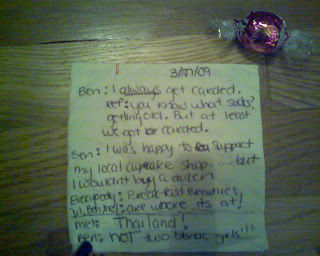 3/27/09
Ben: I always get carded.
ref: you know what sucks?
getting old. But at least
we get carded.
Ben: I was happy to support
my local cupcake shop.....but
I wouldn't buy a dozen
Everybody: Breakfast Brownies
are where its at!
me: Thailand!
Ben: NOT two girls!!!